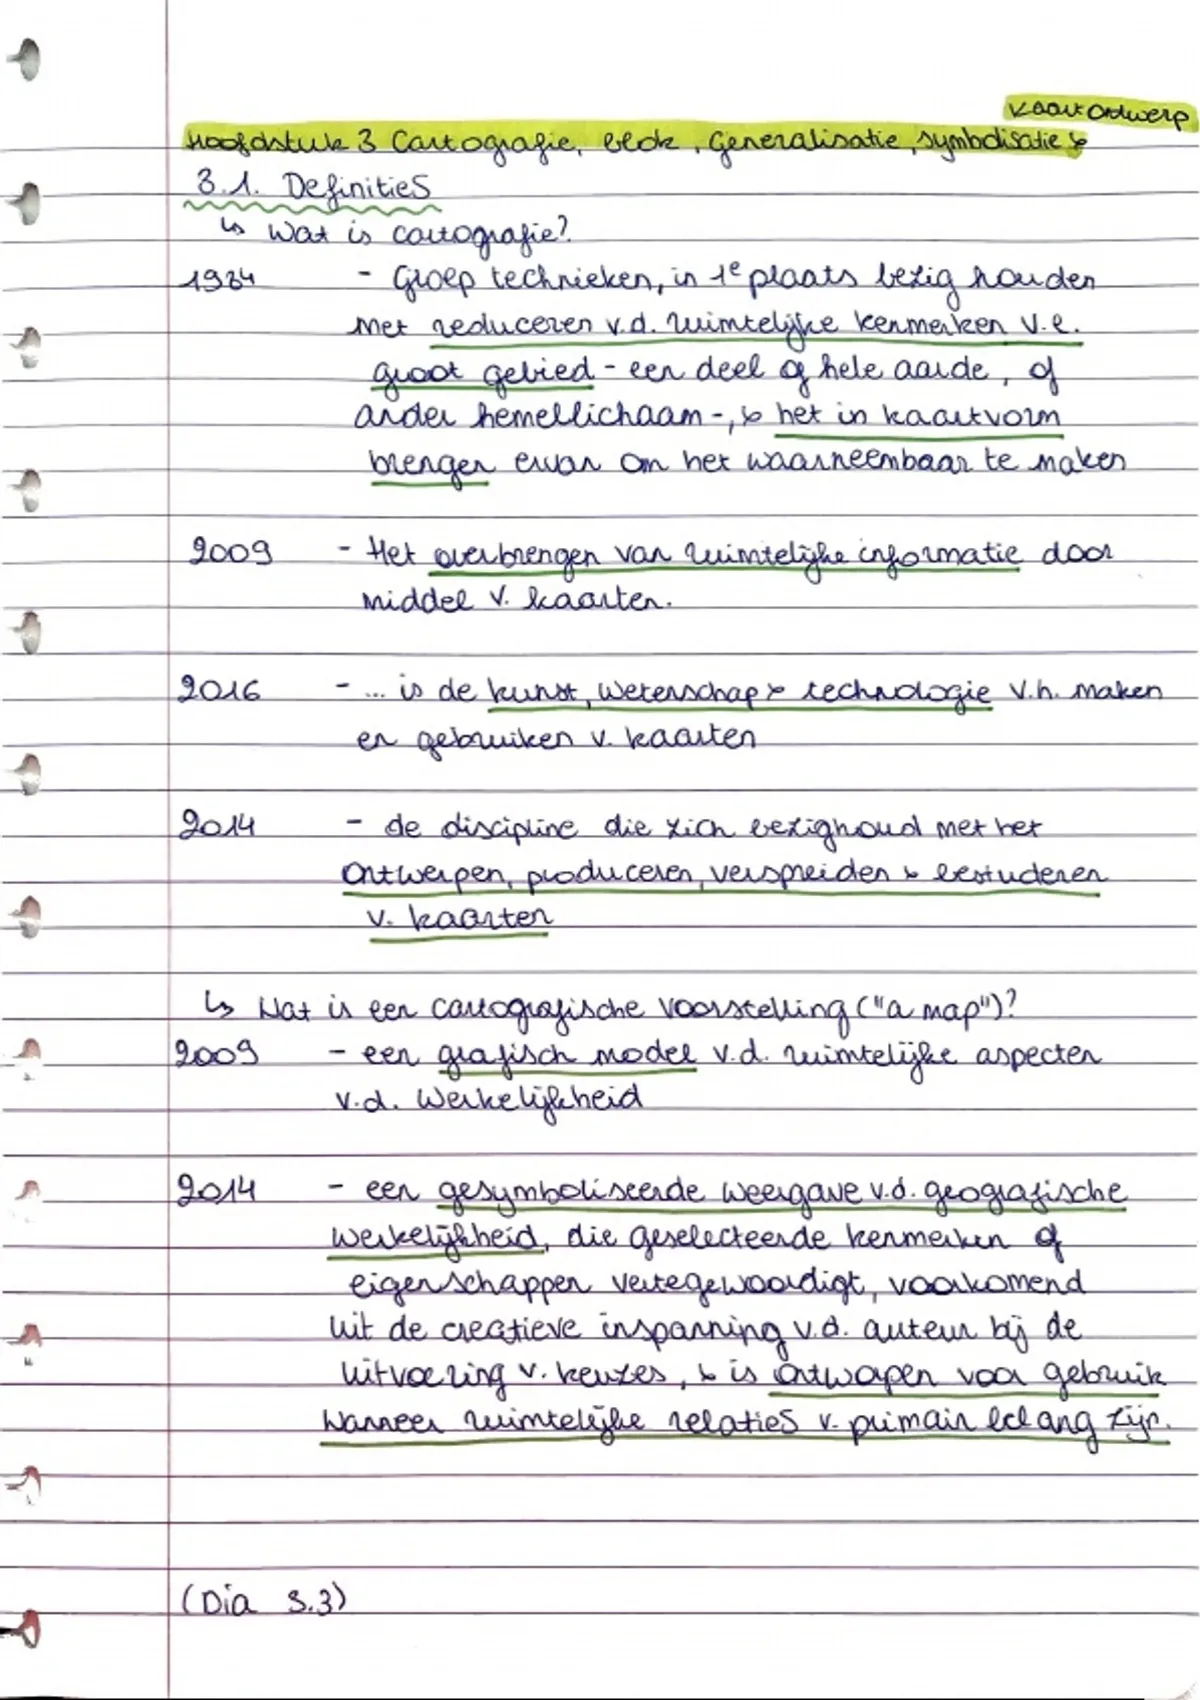 Kaartontwerp
Hoofdstuk 3 Cartografie, , Generalisatie, symbolisatie &
3.1. Definities
↳ Wat is cartografie?
1984 - Groep technieken, in 1e plaats bezig houden
met reduceren v.d. ruimtelijke kenmerken v.e.
groot gebied - een deel of hele aarde, of
ander hemellichaam -, & het in kaartvorm
brengen ervan om het waarneembaar te maken
2009 - Het overbrengen van ruimtelijke informatie door
middel v. kaarten.
2016 - ... is de kunst, wetenschap & technologie v.h. maken
en gebruiken v. kaarten
2014 - de discipline die zich bezighoud met het
ontwerpen, produceren, verspreiden & bestuderen
v. kaarten
↳ Wat is een cartografische voorstelling ("a map")?
2009 - een grafisch model v.d. ruimtelijke aspecten
v.d. werkelijkheid
2014 - een gesymboliseerde weergave v.d. geografische
werkelijkheid, die geselecteerde kenmerken of
eigenschappen vertegewoordigt, voorkomend
uit de creatieve inspanning v.d. auteur bij de
uitvoering v. keuzes, & is ontworpen voor gebruik
wanneer ruimtelijke relaties v. primair belang zijn.
(Dia 3.3)